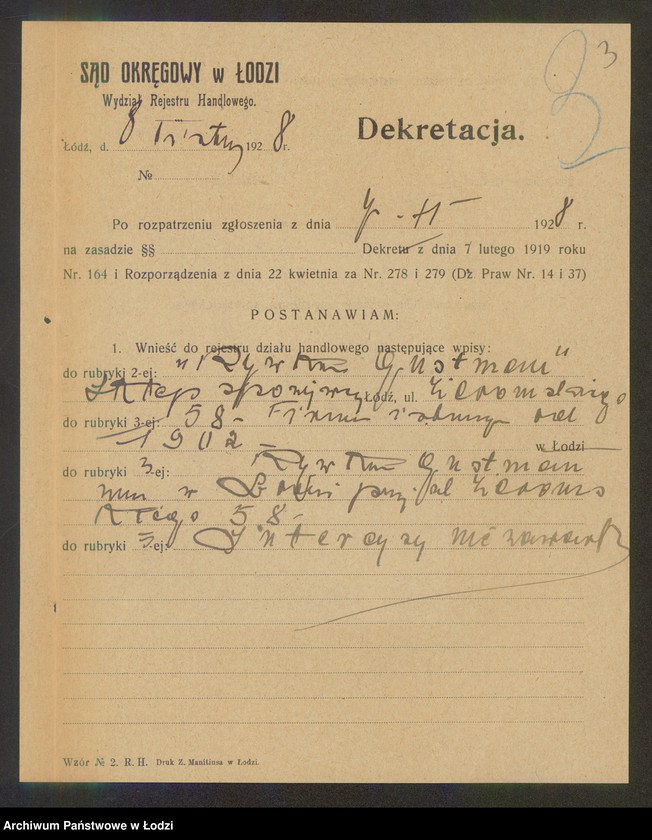 3
SĄD OKRĘGOWY w ŁODZI
Wydział Rejestru Handlowego.
Łódź, d. 8 1928 r.
Dekretacja.
№
Po rozpatrzeniu zgłoszenia z dnia 1928 r.
na zasadzie §§ Dekretu z dnia 7 lutego 1919 roku
Nr. 164 i Rozporządzenia z dnia 22 kwietnia za Nr. 278 i 279 (Dz Praw Nr. 14 i 37)
POSTANAWIAM:
1. Wnieść do rejestru działu handlowego następujące wpisy:
do rubryki 2-ej: „Rywka Gustman"
Sklep spożywczy Łódź, ul. Żeromskiego
do rubryki 3-ej: 58- Firma istnieje od
1902 - w Łodzi
do rubryki 3-ej: Rywka Gustman
w Łodzi przy ul Żeroms
kiego 58-
do rubryki 5-ej: Intercyzy nie zawarła
Wzór № 2. R. H. Druk Z. Manitiusa w Łodzi.
Archiwum Państwowe w Łodzi